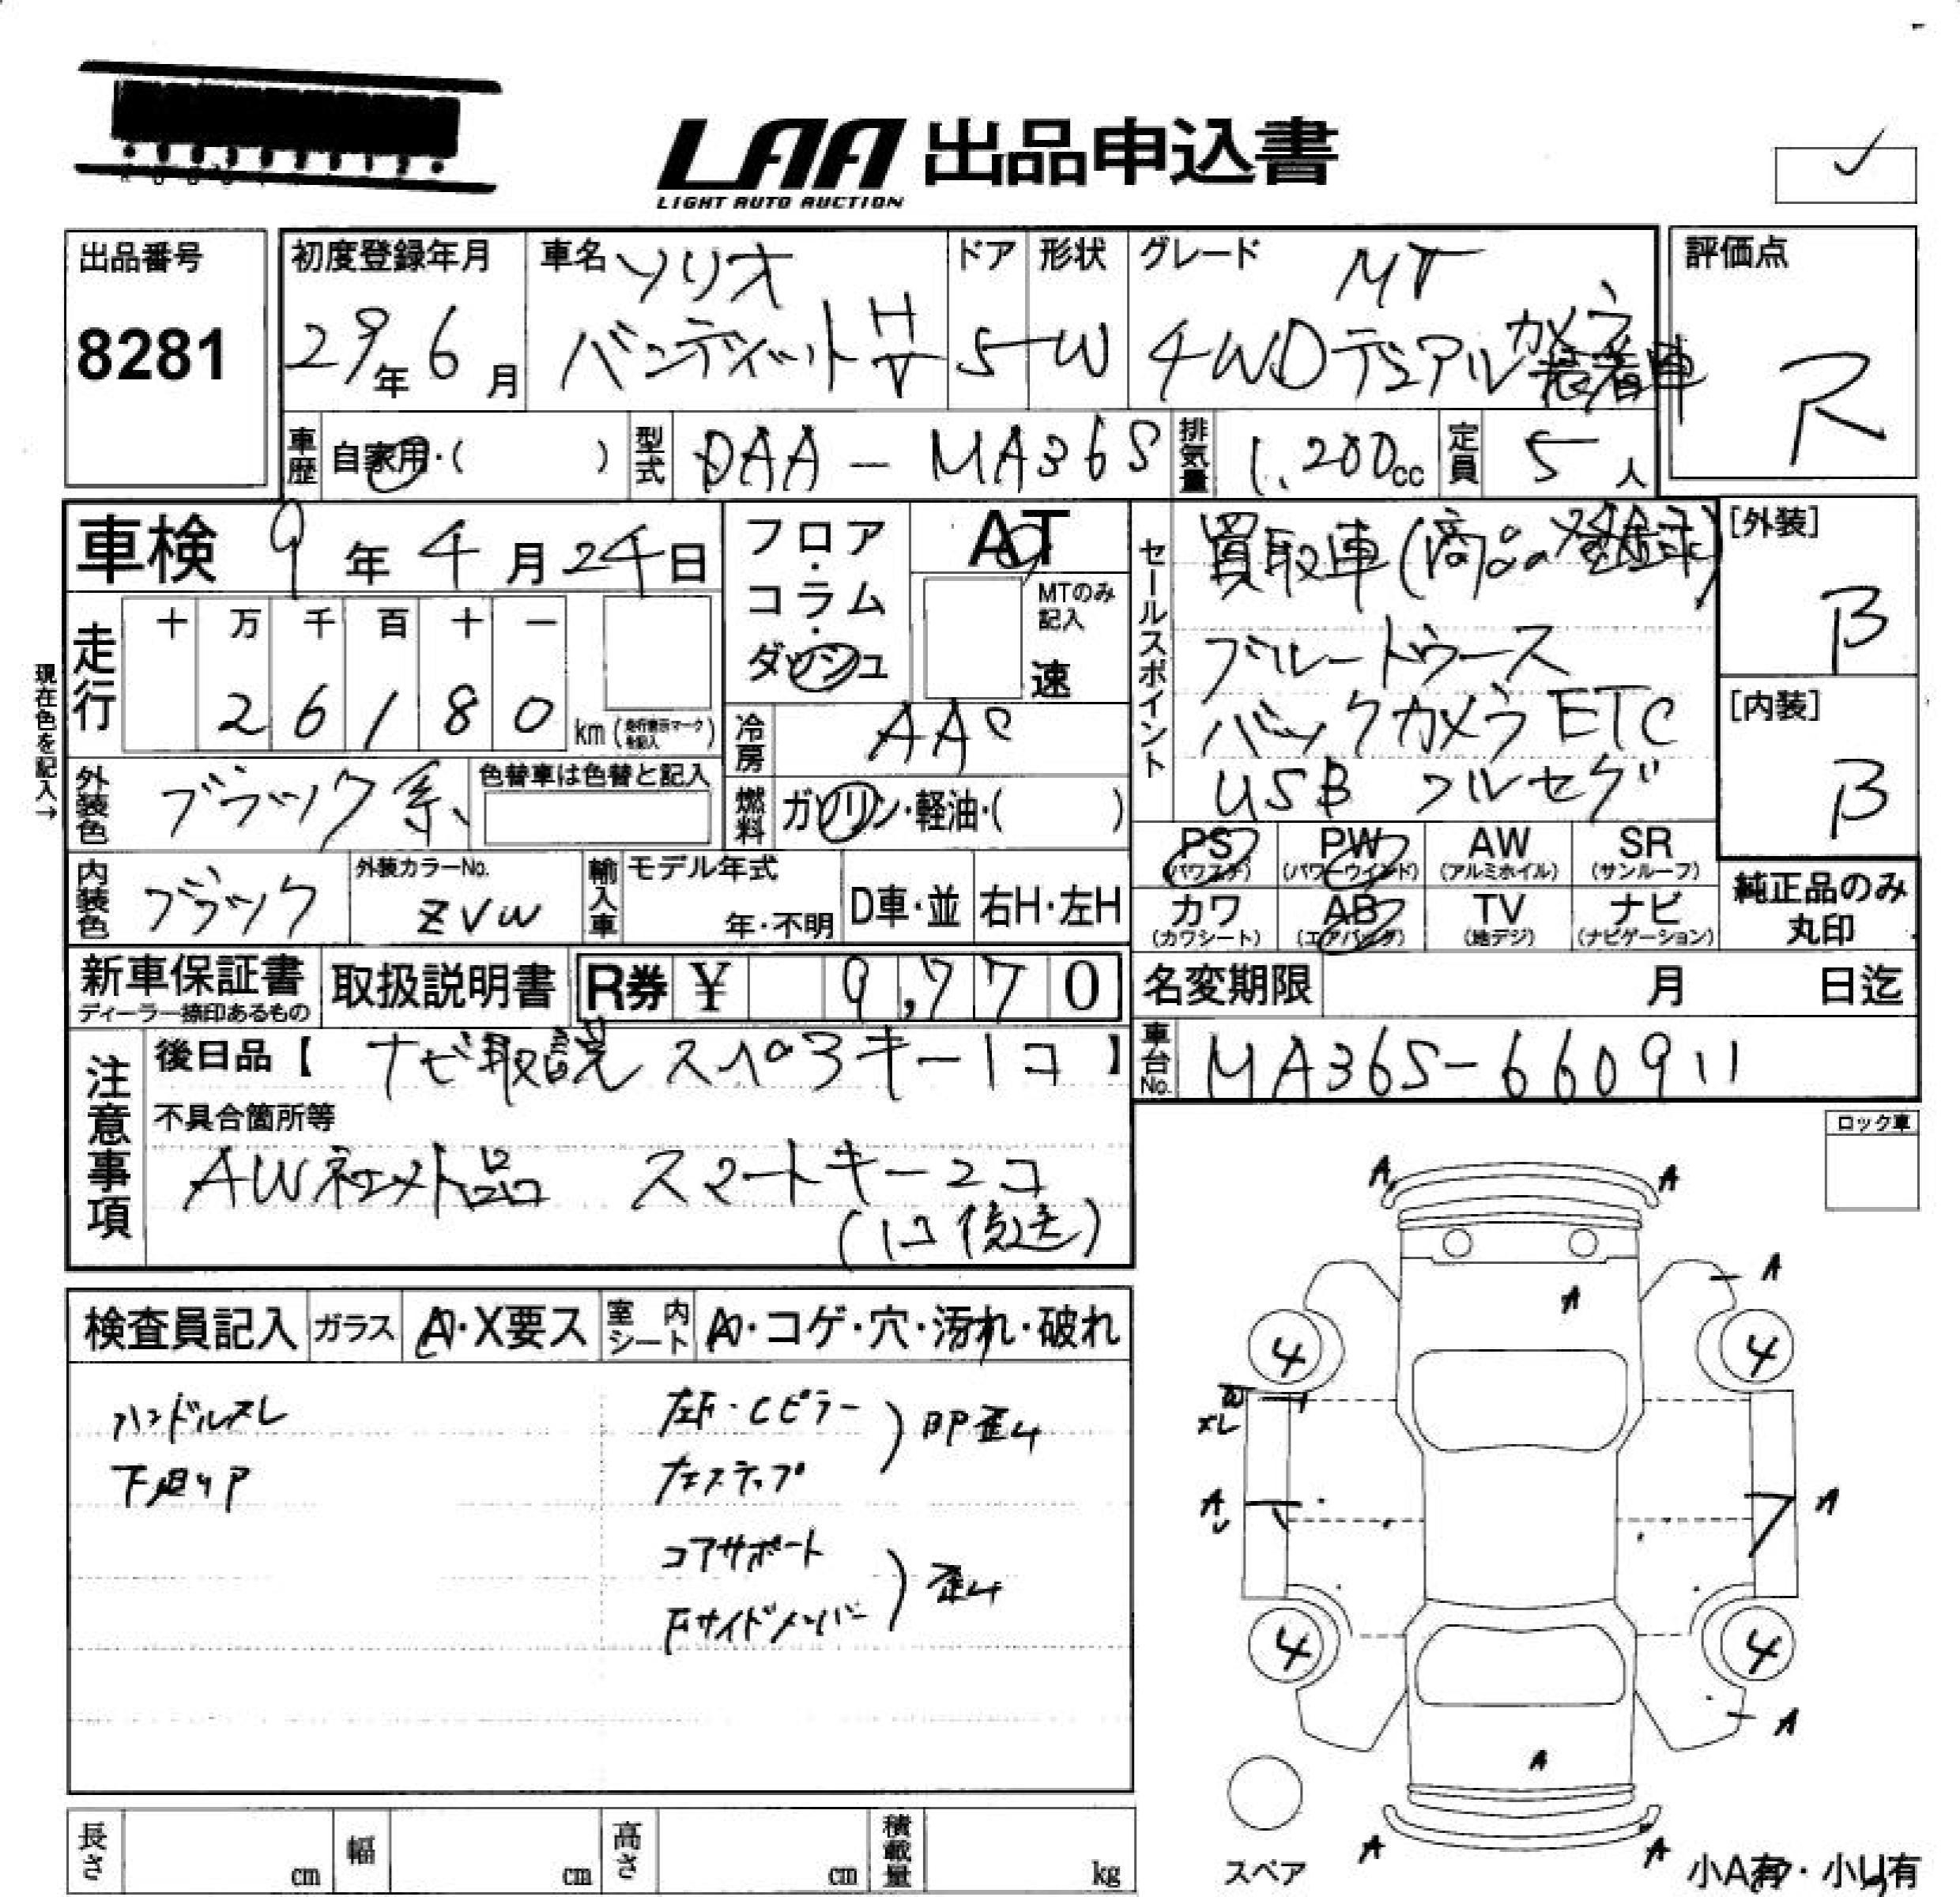 LAA 出品申込書
LIGHT AUTO AUCTION
出品番号
8281
初度登録年月
29年 6月
車名 ソリオ
バンディット HV
ドア
5
形状
W
グレード MV
4WD デュアルカメラ装着車
評価点
R
車歴 自家用・( )
型式 DAA-MA36S
排気量 1,200cc
定員 5人
車検 9年 4月 24日
走行 十 万 千 百 十 一
26180 km (走行表示マークを記入)
現在色を記入→
フロア・コラム・ダッシュ
AT
MTのみ記入
速
冷房 AAC
燃料 ガソリン・軽油・( )
セールスポイント
買取車(商品の登録)
ブルートゥース
バックカメラ ETC
USB フルセグ
[外装]
B
[内装]
B
外装色 ブラック系
色替車は色替と記入
内装色 ブラック
外装カラーNo.
ZVW
輸入車 モデル年式
年・不明
D車・並 右H・左H
PS AB PW AW SR
(パワステ) (パワーウインド) (アルミホイル) (サンルーフ)
カワ TV ナビ
(カワシート) (エアバッグ) (地デジ) (ナビゲーション)
純正品のみ
丸印
新車保証書
ディーラー捺印あるもの
取扱説明書
R券 ¥ 9,770
名変期限 月 日迄
車台No. MA36S-660911
注意事項
後日品【 ナビ取説 スペアキー1コ 】
不具合箇所等
AW社外品 スマートキー2コ
(1コ後送)
ロック車
検査員記入 ガラス A・X要ス 室内シート A・コゲ・穴・汚れ・破れ
ハンドルスレ
下廻りP
左F・Cピラー
左ステップ
)BP歪み
コアサポート
Fサイドメンバー
)歪み
A A
A
A
4 4
W
ズレ
A
A
4 4
A
A
A A
スペア
小A有・小U有
長さ cm 幅 cm 高さ cm 積載量 kg